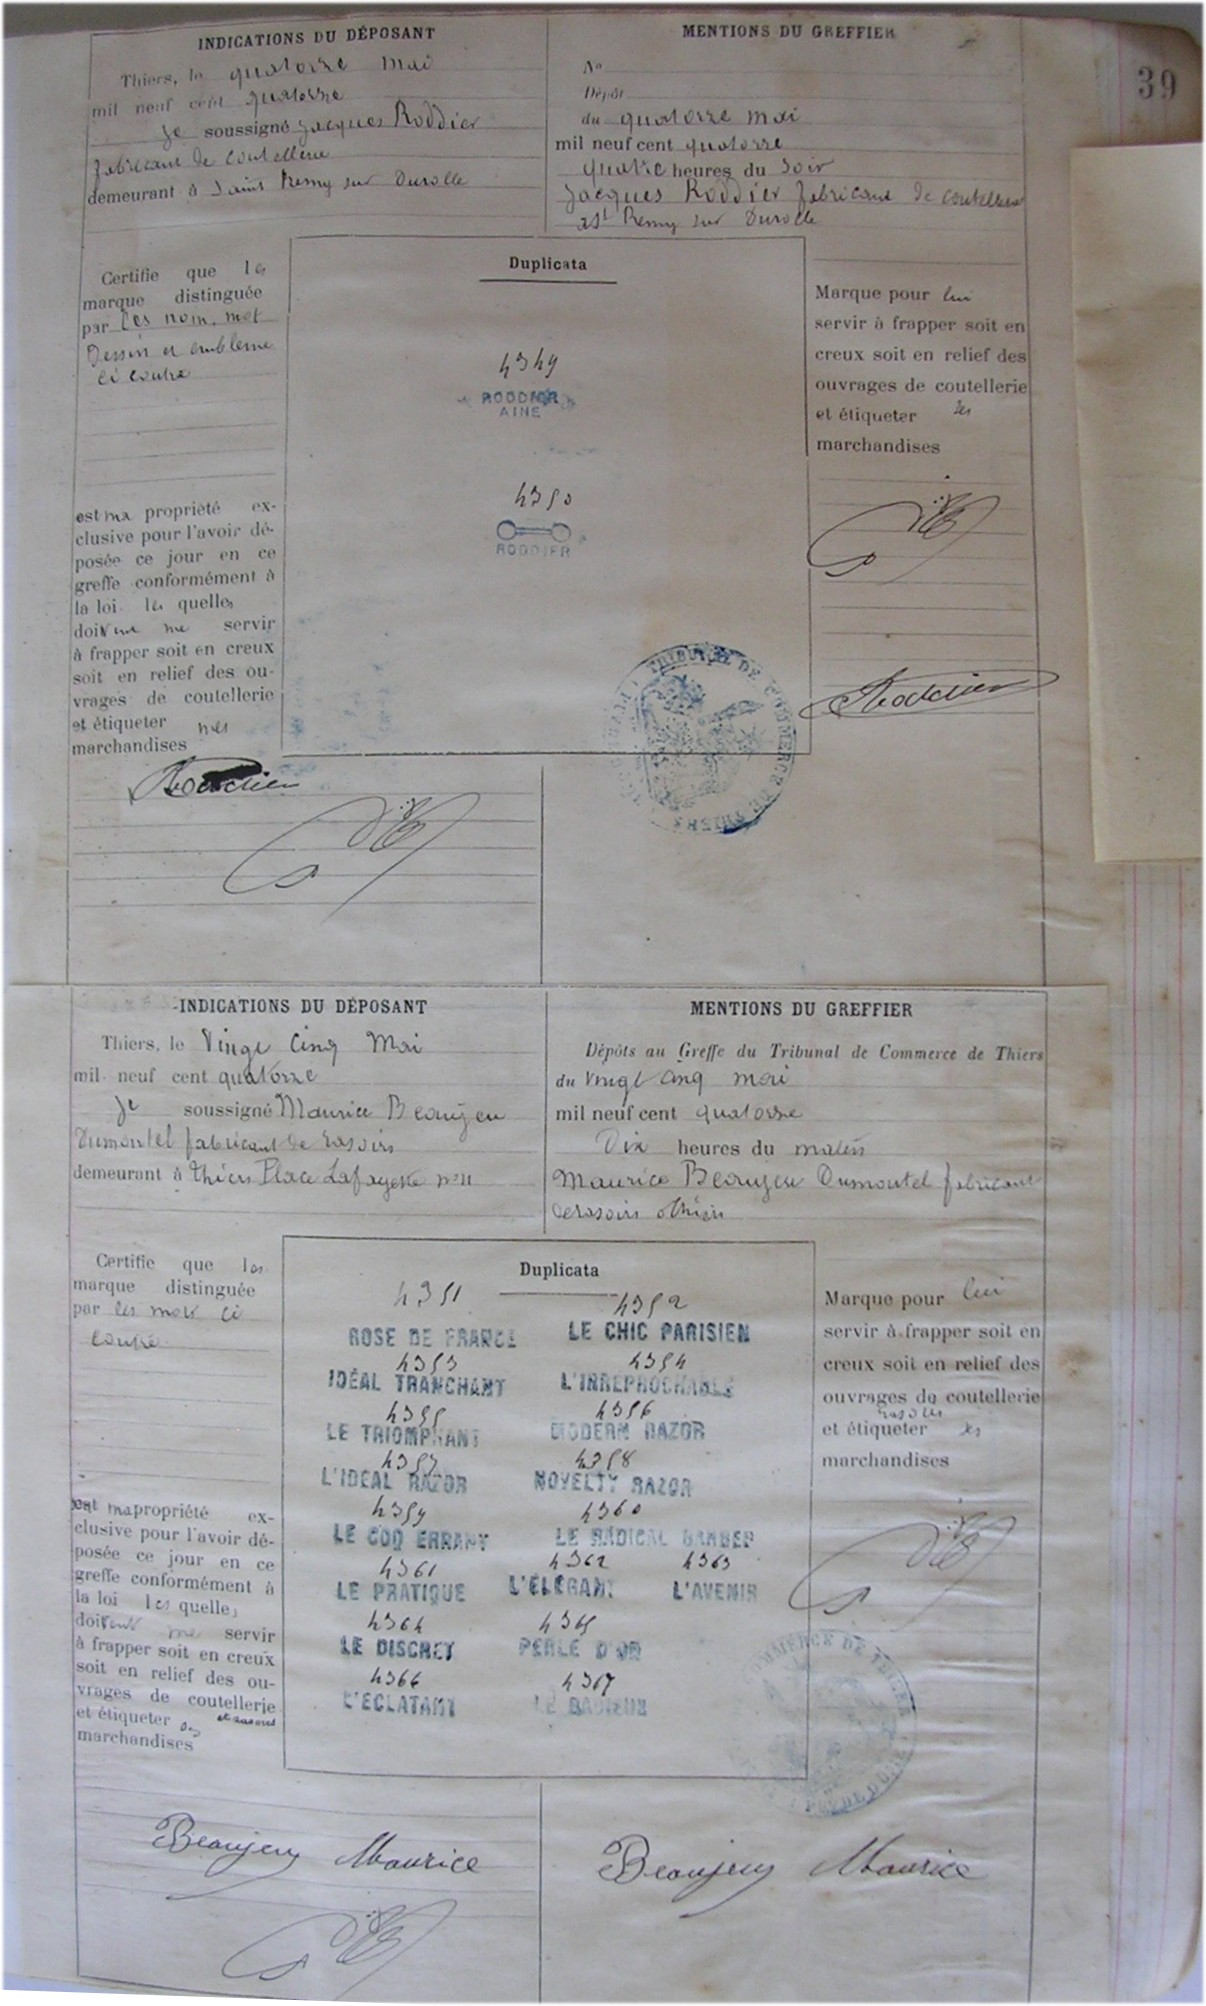 39
INDICATIONS DU DÉPOSANT
Thiers, le quatorze mai
mil neuf cent quatorze
Je soussigné Jacques Roddier
fabricant de coutellerie
demeurant à Saint Remy sur Durolle
MENTIONS DU GREFFIER
No
Dépôt
du quatorze mai
mil neuf cent quatorze
quatre heures du soir
Jacques Roddier fabricant de coutellerie
a St Remy sur Durolle
Certifie que les
marque distinguée
par les nom, mot
Dessin et embleme
ci contre
est ma propriété ex-
clusive pour l'avoir dé-
posée ce jour en ce
greffe conformément à
la loi les quelles
doivent me servir
à frapper soit en creux
soit en relief des ou-
vrages de coutellerie
et étiqueter mes
marchandises
Roddier
Duplicata
4349
RODDIER
AINÉ
4350
RODDIER
Marque pour lui
servir à frapper soit en
creux soit en relief des
ouvrages de coutellerie
et étiqueter ses
marchandises
Roddier
TRIBUNAL DE COMMERCE DE THIERS
INDICATIONS DU DÉPOSANT
Thiers, le Vingt Cinq Mai
mil neuf cent quatorze
Je soussigné Maurice Beaujeu
Dumontel fabricant de rasoirs
demeurant à Thiers Place Lafayette no 11
MENTIONS DU GREFFIER
Dépôts au Greffe du Tribunal de Commerce de Thiers
du vingt cinq mai
mil neuf cent quatorze
Dix heures du matin
Maurice Beaujeu Dumontel fabricant
de rasoirs Thiers
Certifie que les
marque distinguée
par les mots ci
contre
est ma propriété ex-
clusive pour l'avoir dé-
posée ce jour en ce
greffe conformément à
la loi les quelles
doivent me servir
à frapper soit en creux
soit en relief des ou-
vrages de coutellerie
et rasoirs
et étiqueter
marchandises
Duplicata
4351 4352
ROSE DE FRANCE LE CHIC PARISIEN
4353 4354
IDÉAL TRANCHANT L'IRREPROCHABLE
4355 4356
LE TRIOMPHANT MODERN RAZOR
4357 4358
L'IDEAL RAZOR NOVELTY RAZOR
4359 4360
LE COQ ERRANT LE RADICAL BARBER
4361 4362 4363
LE PRATIQUE L'ÉLÉGANT L'AVENIR
4364 4365
LE DISCRET PERLE D'OR
4366 4367
L'ECLATANT LE RADIEUX
Marque pour lui
servir à frapper soit en
creux soit en relief des
ouvrages de coutellerie
rasoirs
et étiqueter ses
marchandises
COMMERCE DE THIERS
PUY DE DOME
Beaujeu Maurice
Beaujeu Maurice